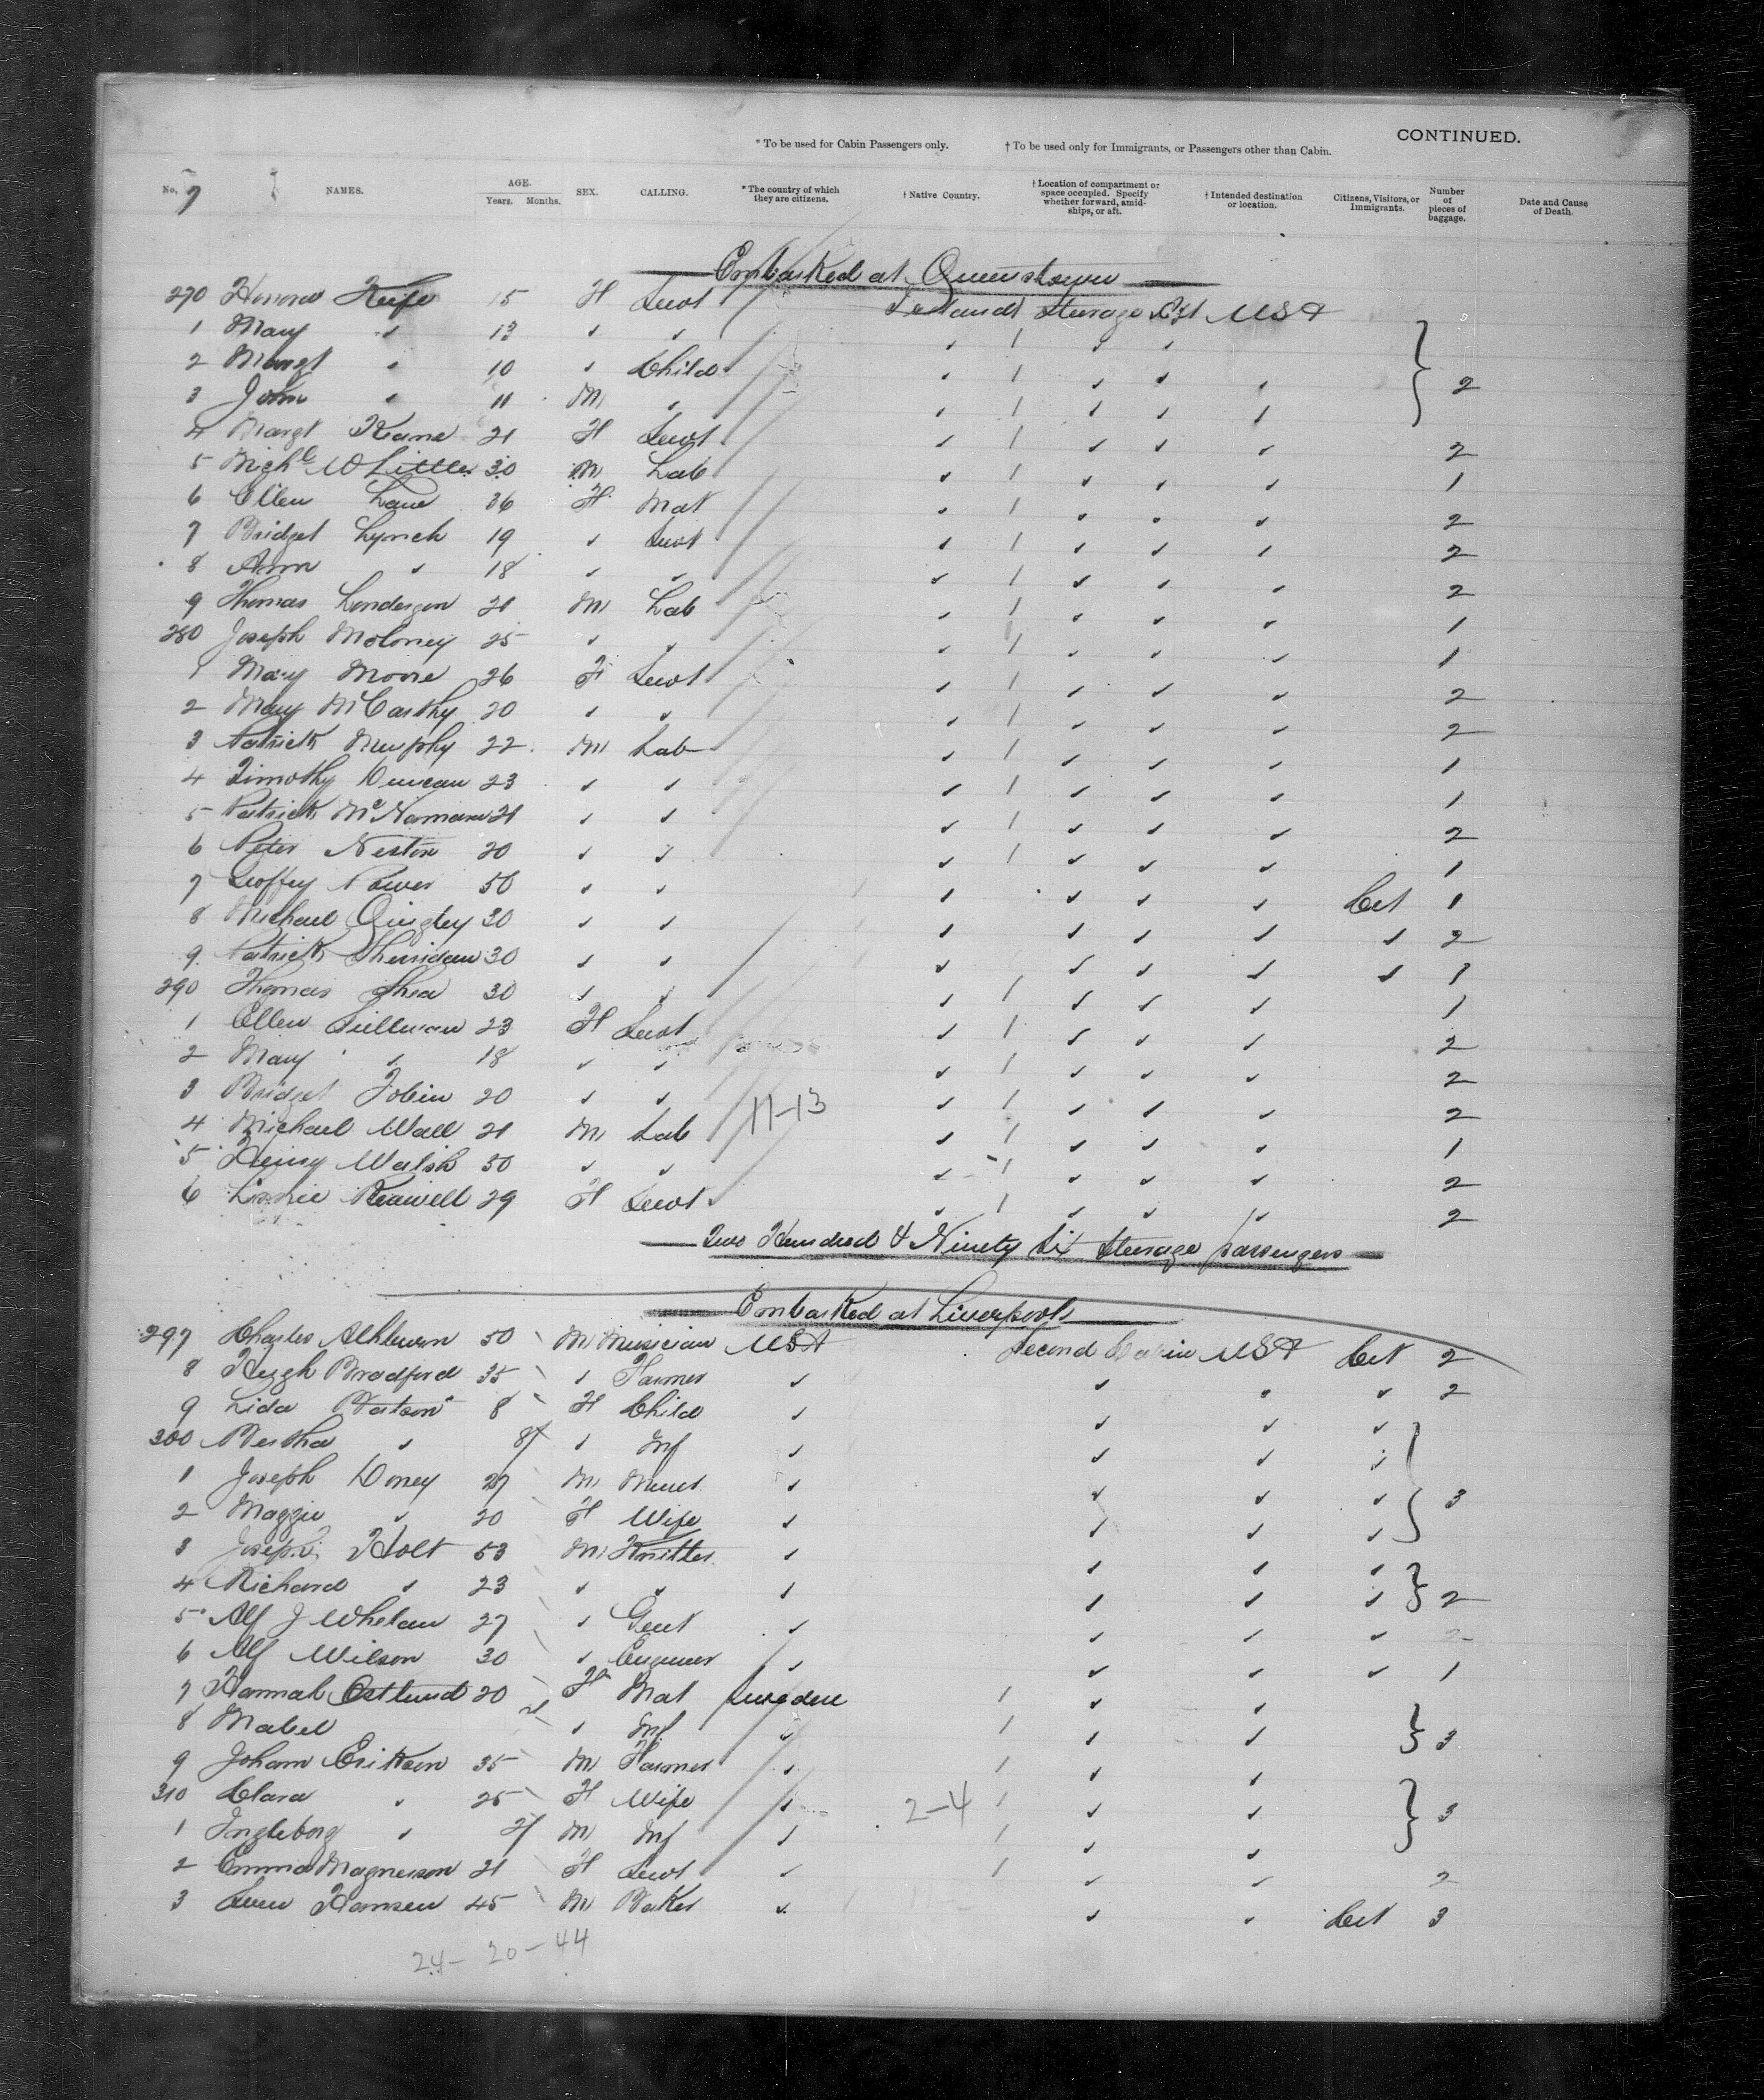 CONTINUED.
* To be used for Cabin Passengers only. † To be used only for Immigrants, or Passengers other than Cabin.
No. 7 NAMES. AGE. Years. Months. SEX. CALLING. * The country of which they are citizens. † Native Country. † Location of compartment or space occupied. Specify whether forward, amidships, or aft. † Intended destination or location. Citizens, Visitors, or Immigrants. Number of pieces of baggage. Date and Cause of Death.
Embarked at Queenstown
270 Honora Keife 15 F Servt / Ireland Steerage Aft USA
1 Mary " 13 " " " 1 " "
2 Margt " 10 " Child " 1 " " " } 2
3 John " 11 M " " 1 " " "
4 Margt Keane 21 F Servt " 1 " " " 2
5 Michl Whittle 30 M Lab " 1 " " " 1
6 Ellen Lane 26 F Mat " 1 " " " 2
7 Bridget Lynch 19 " Servt " 1 " " " 2
8 Ann " 18 " " " 1 " " " 2
9 Thomas Londergon 21 M Lab " 1 " " " 1
280 Joseph Moloney 25 " " " 1 " " " 1
1 Mary Moore 26 F Servt " 1 " " " 2
2 Mary McCarthy 20 " " " 1 " " " 2
3 Patrick Murphy 22 M Lab " 1 " " " 1
4 Timothy Duncan 23 " " " 1 " " " 1
5 Patrick McNamara 21 " " " 1 " " " 2
6 Peter Nestor 20 " " " 1 " " " 1
7 Geoffry Power 50 " " " " " " Cit 1
8 Michael Quigley 30 " " " " " " " 2
9 Patrick Sheridan 30 " " " " " " " 1
290 Thomas Shea 30 " " " 1 " " " 1
1 Ellen Sullivan 23 F Servt " 1 " " " 2
2 Mary " 18 " " " 1 " " " 2
3 Bridget Tobin 20 " " " 1 " " " 2
4 Michael Wall 21 M Lab 11-13 " 1 " " " 1
5 Henry Walsh 30 " " " 1 " " " 2
6 Lizzie Keawell 29 F Servt " 1 " " " 2
Two Hundred & Ninety Six Steerage passengers
Embarked at Liverpool
297 Charles Athlumn 50 M Musician USA Second Cabin USA Cit 2
8 Hugh Bradford 35 " Farmer " " " " 2
9 Lida Batson 8 F Child " " " "
300 Bertha " " Inf " " " "
1 Joseph Doney 27 M Miner " " " " 3
2 Maggie " 20 F Wife " " " "
3 Joseph Holt 53 M Knitter " " " "
4 Richard " 23 " " " " " " } 2
5 Alf J Whelan 27 " Gent " " " " 2
6 Alf Wilson 30 " Engineer " " " " 1
7 Hannah Ostlund 20 F Mat Sweden 1 " "
8 Mabel " Inf " 1 " " } 3
9 Joham Erikson 35 M Farmer " 1 " "
310 Clara " 25 F Wife " 2-4 1 " " } 3
1 Ingleborg " M Inf " 1 " "
2 Emma Magnuson 21 F Servt " 1 " " 2
3 Sven Hansen 45 M Baker " " " Cit 3
24- 20-44